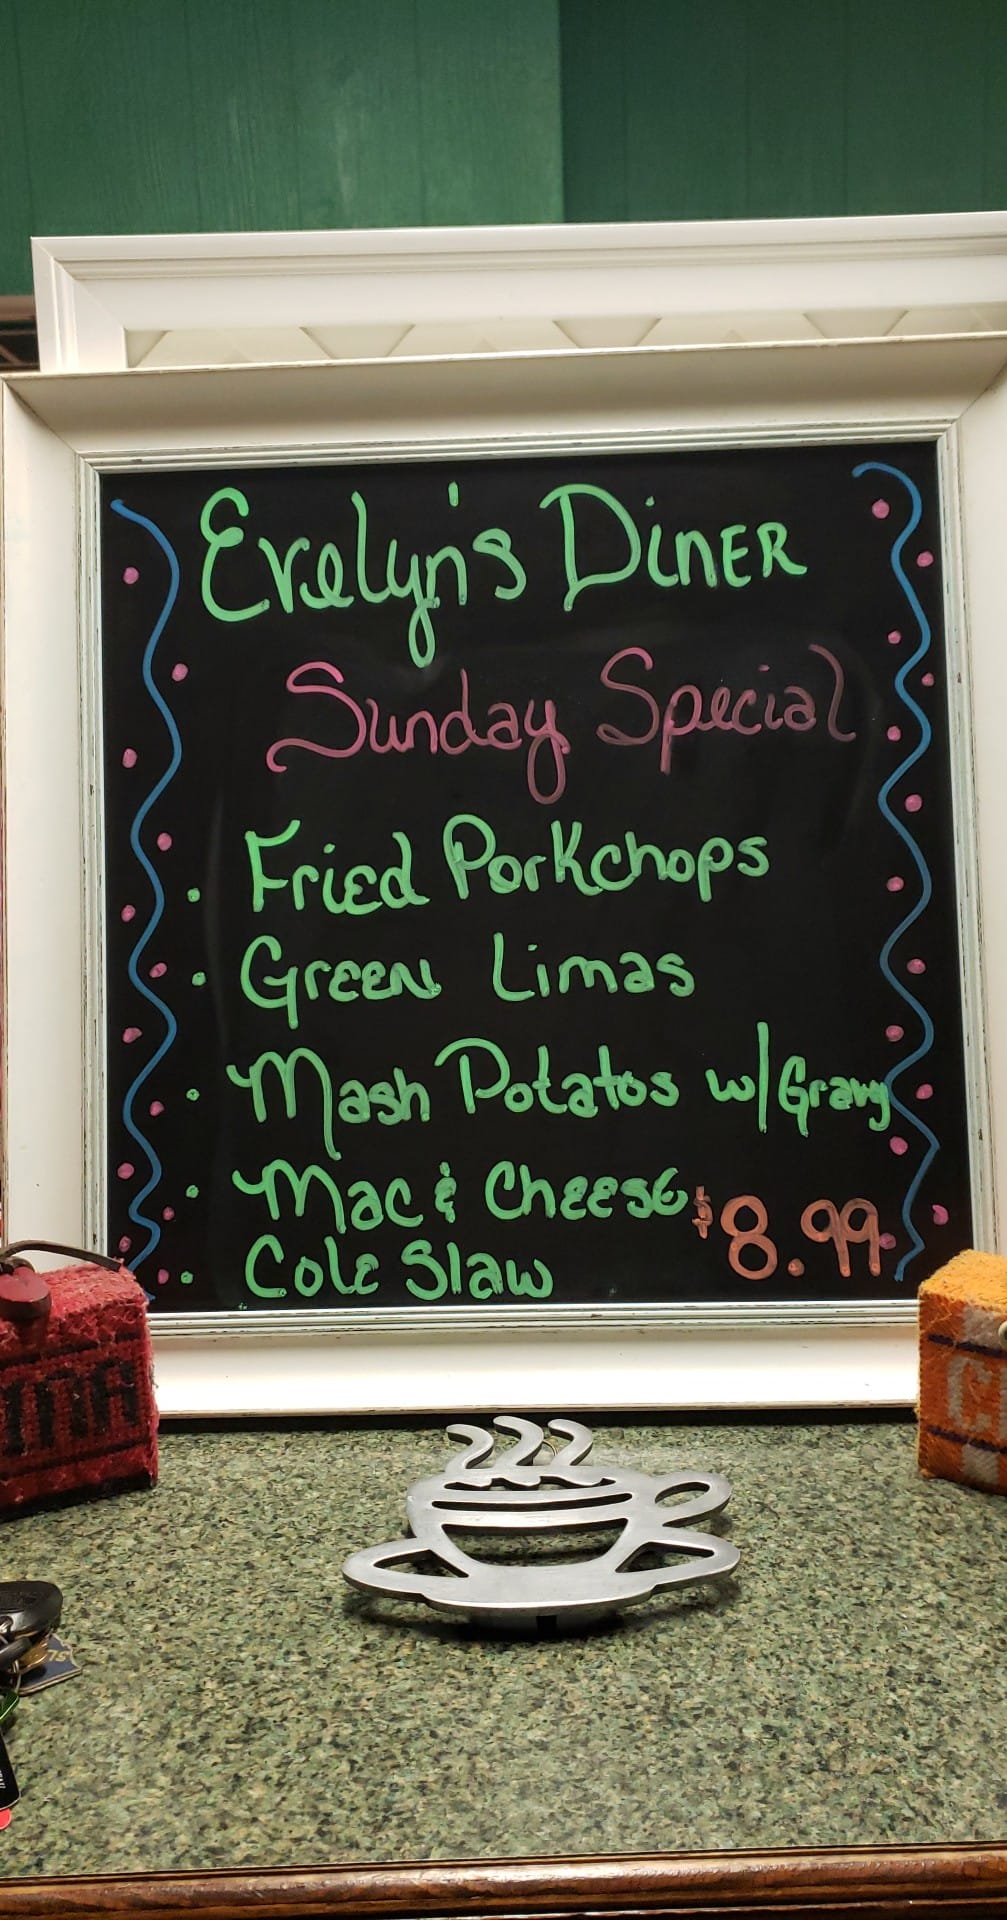 Evelyn's Diner
Sunday Special
• Fried Porkchops
• Green Limas
• Mash Potatos w/Gravy
• Mac & Cheese
$8.99
• Cole Slaw